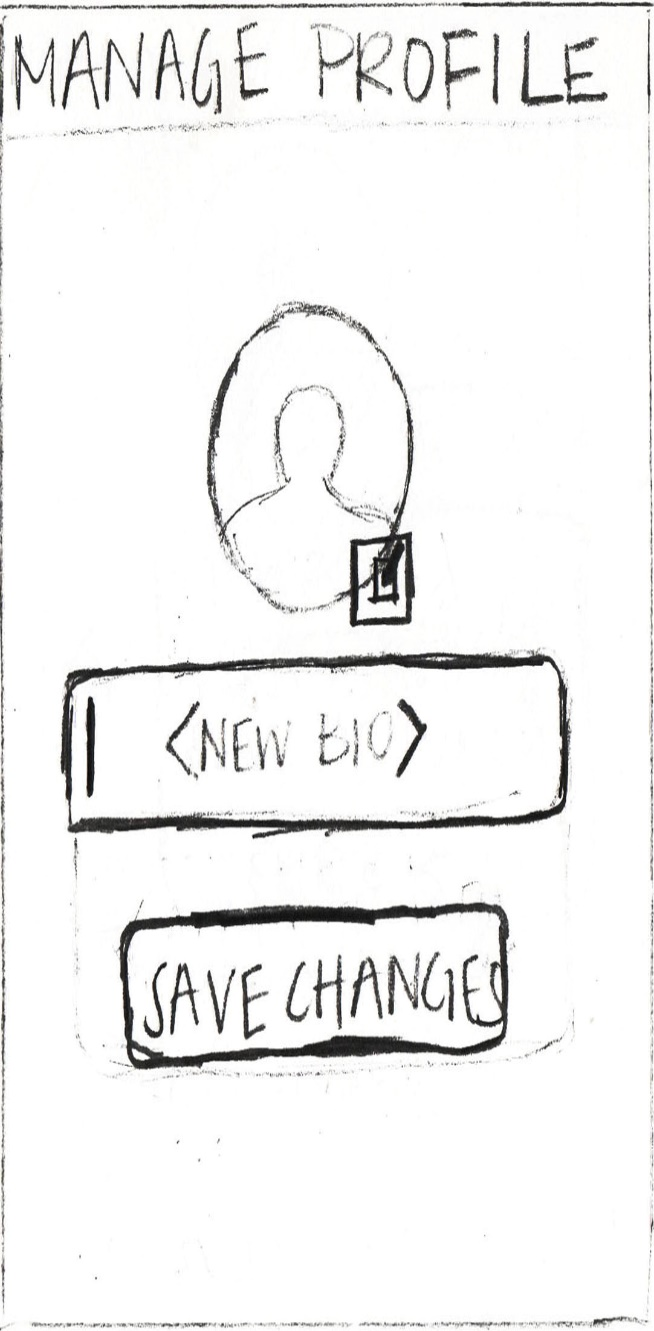 MANAGE PROFILE
<NEW BIO>
SAVE CHANGES